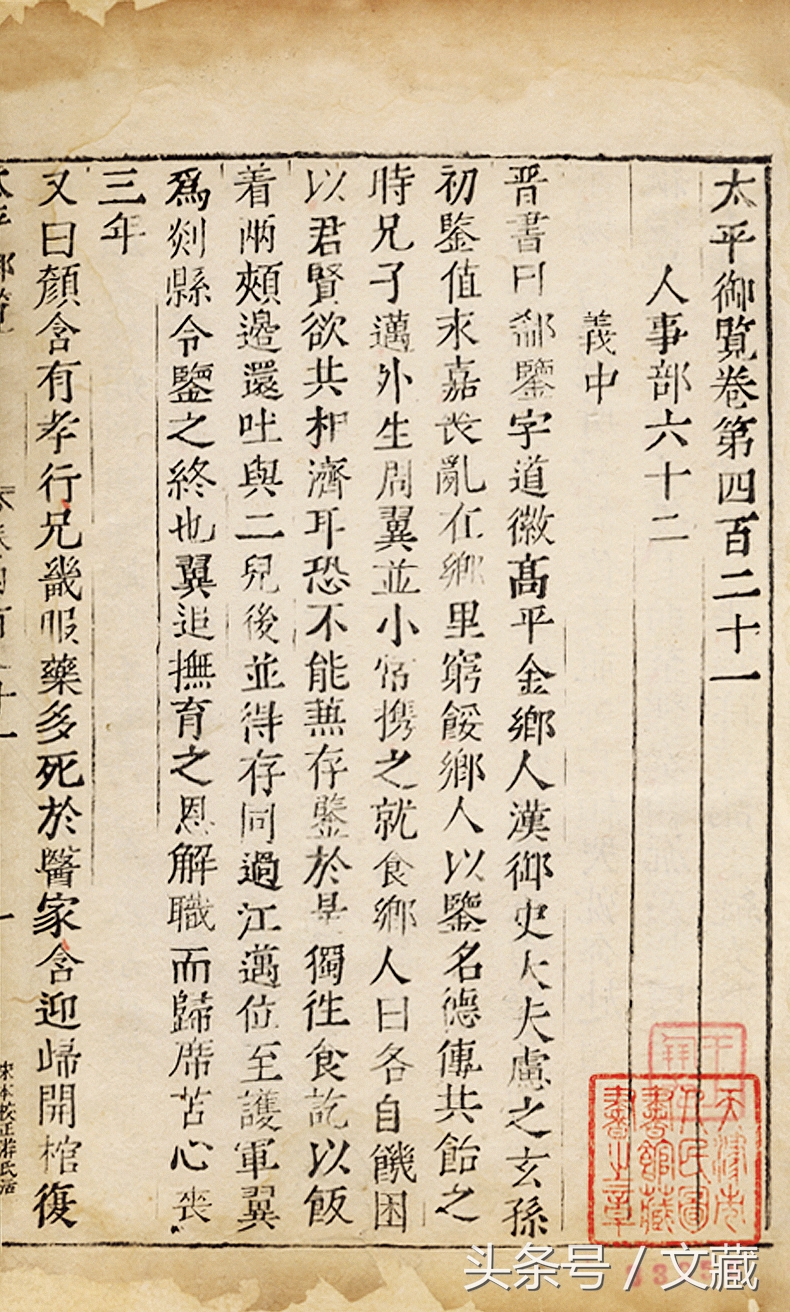 太平御覧卷第四百二十一
人事部六十二
義中
晋書曰郗鑒字道徽髙平金鄉人漢御史大夫慮之玄孫
初鑒值永嘉䘮亂在鄉里窮餒鄉人以鑒名德傳共飴之
時兄子邁外生周翼並小常携之就食鄉人曰各自饑困
以君賢欲共相濟耳恐不能蕪存鑒於是獨徃食訖以飯
着兩頰邊還吐與二兒後並得存同過江邁位至護軍翼
爲剡縣令鑒之終也翼追撫育之恩解職而歸席苫心喪
三年
又曰顏含有孝行兄畿服藥多死於醫家含迎歸開棺復
宋本校正游氏活
天津市人民圖書館藏書之章
头条号 / 文藏